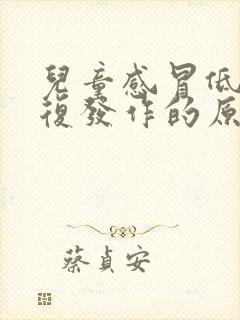 兒童感冒低
復發作的原
蔡貞安